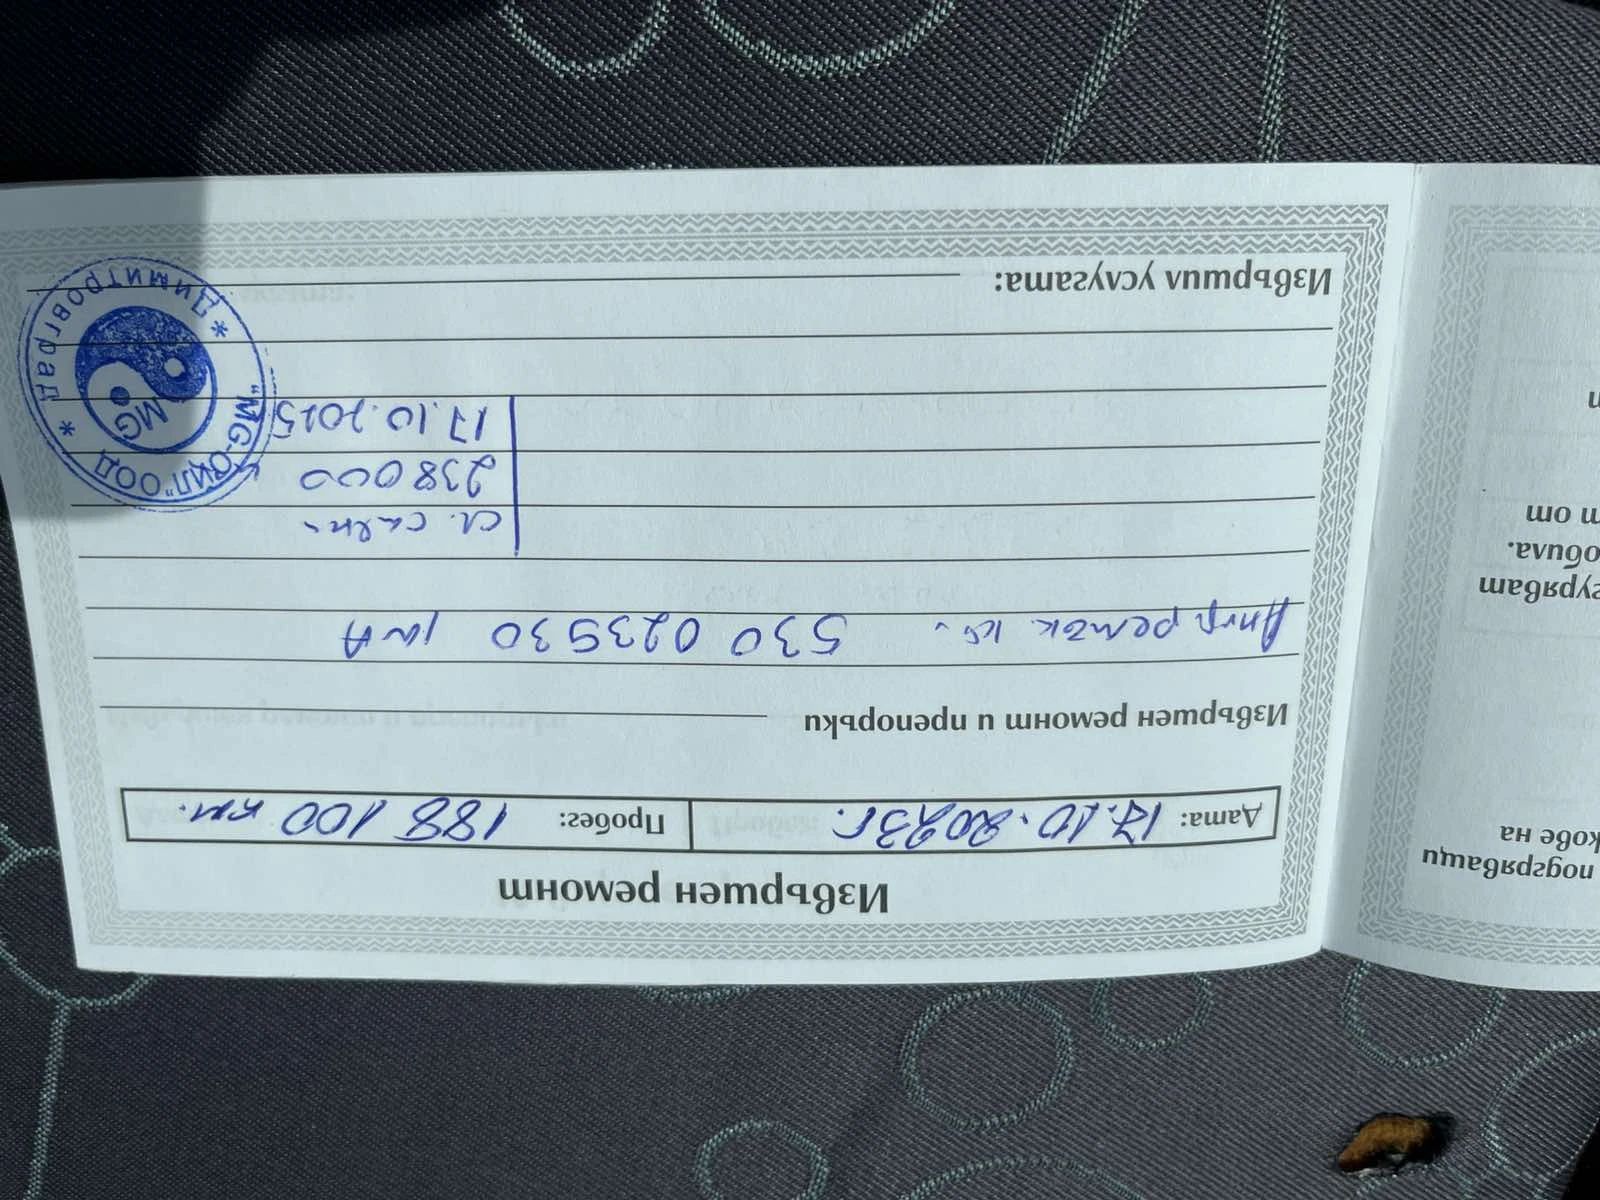 Извършен ремонт
Дата: 17.10.2023г. Пробег: 188 100 км.
Извършен ремонт и препоръки
Анг. ремък к-. 530 023930 INA
сл. смян.
238 000
17.10.2025
Извършил услугата:
"MG-ОЙЛ" ООД
* Димитровград *
MG
подгряващи
кове на
гурябат
обила.
т от